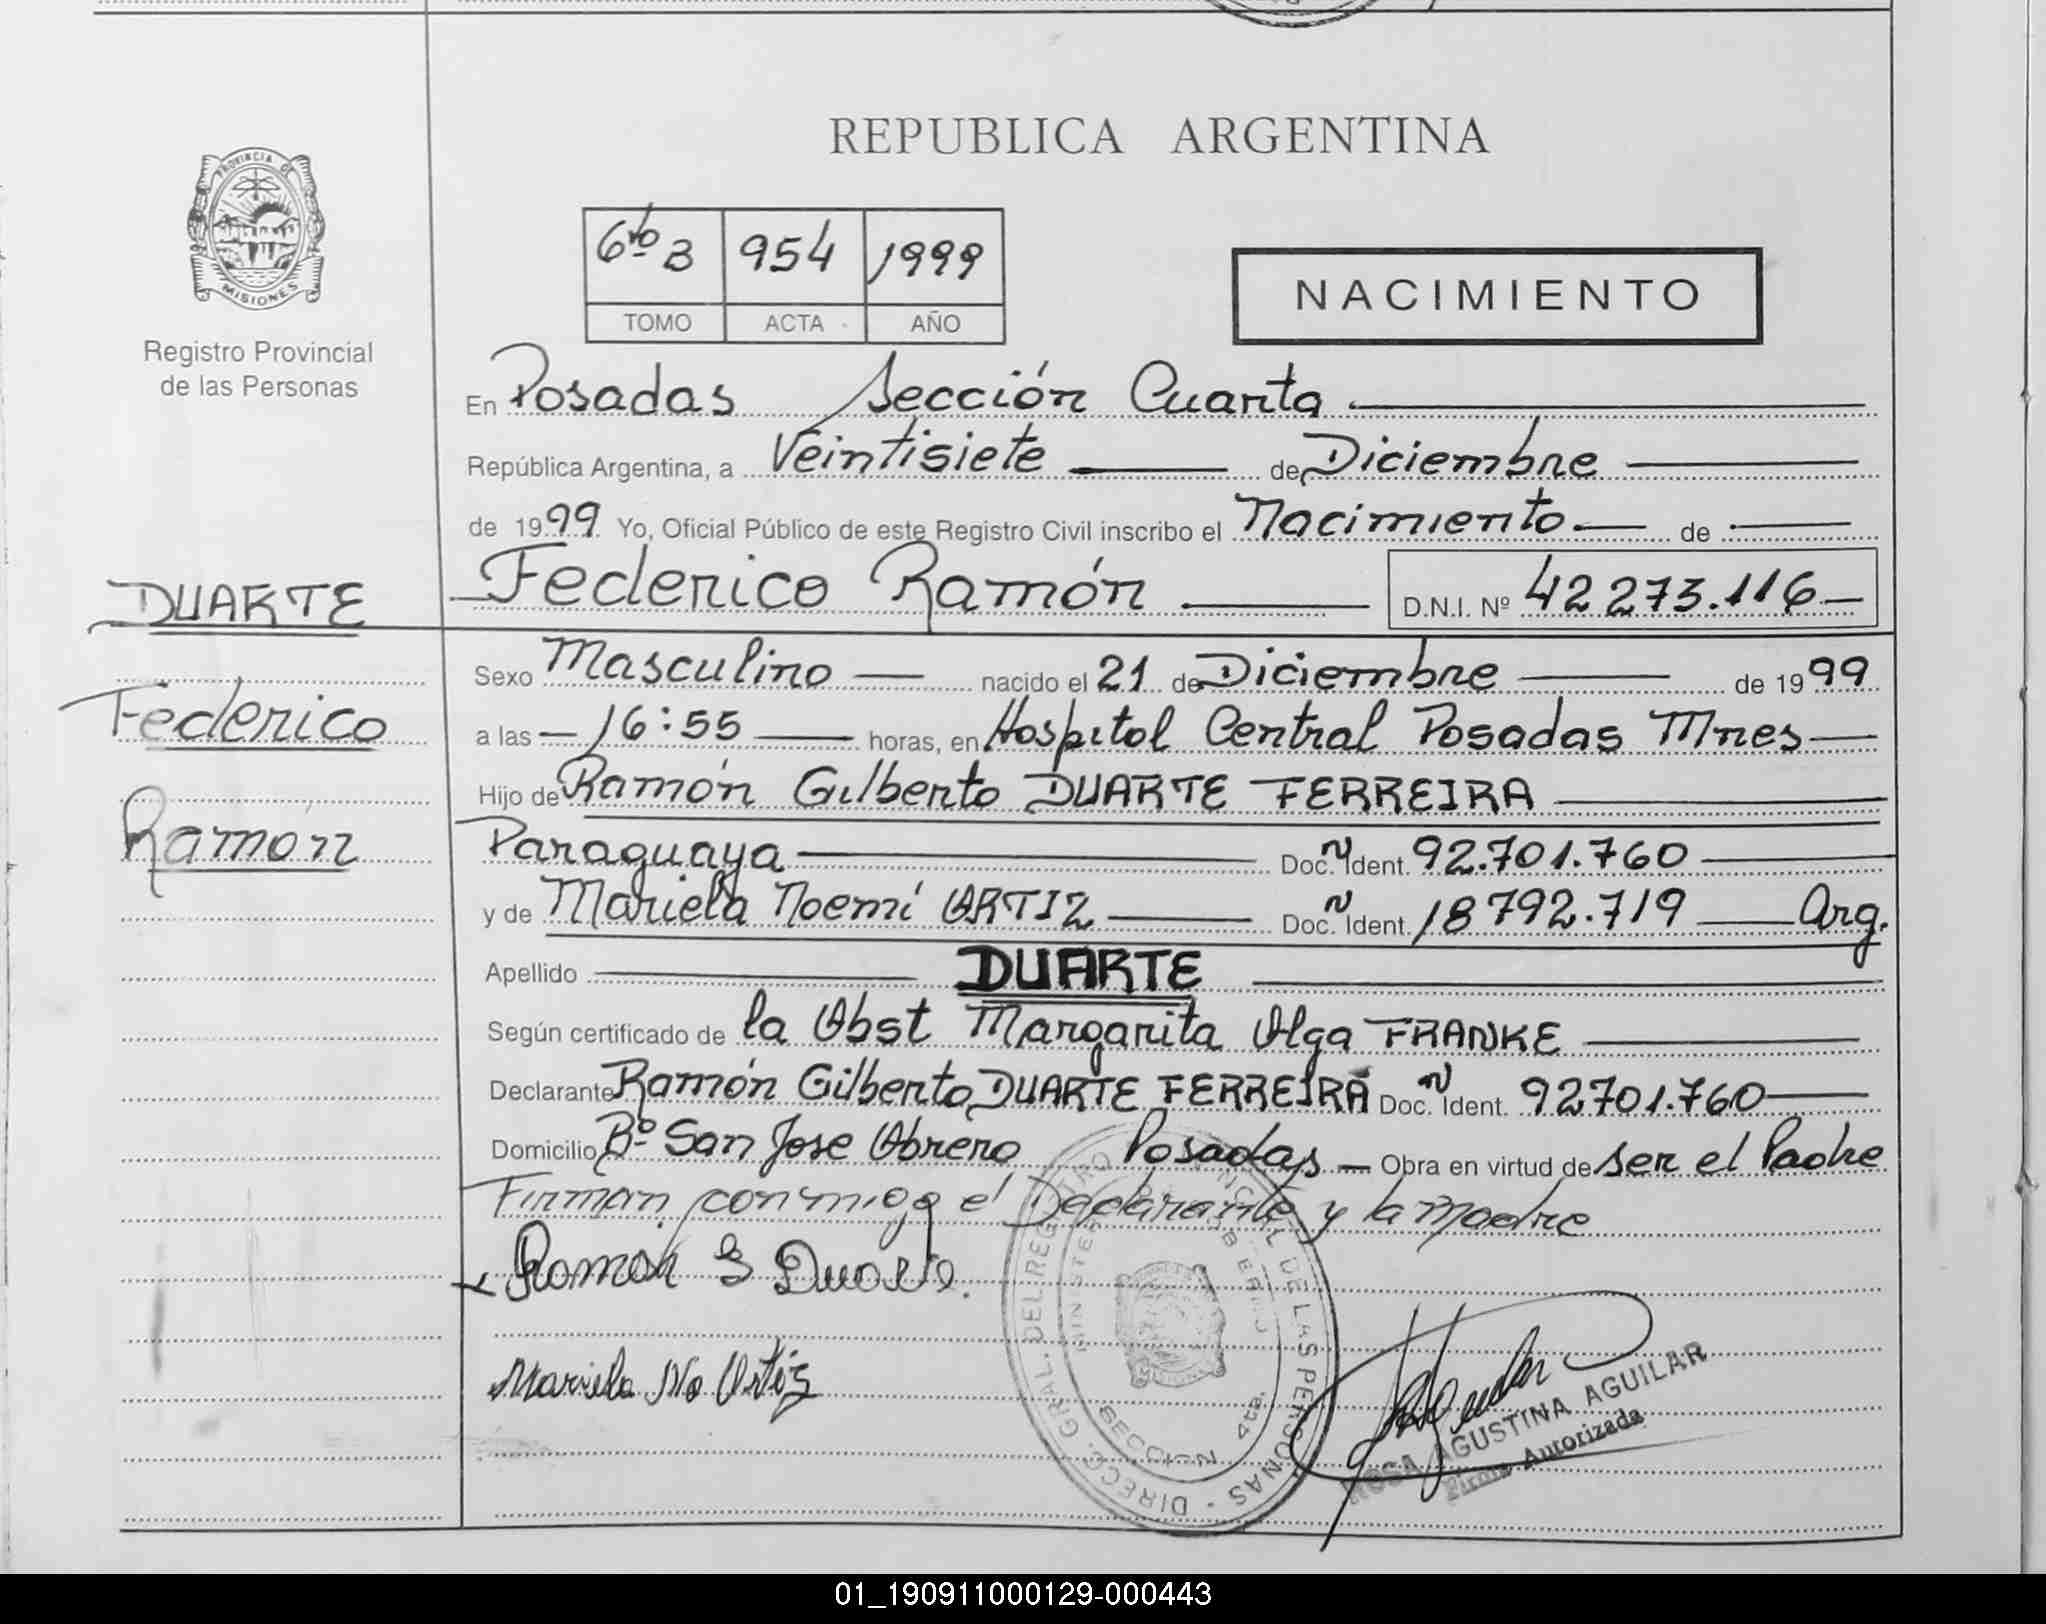 REPUBLICA ARGENTINA
PROVINCIA DE
MISIONES
Registro Provincial
de las Personas
6to B 954 1999
TOMO ACTA AÑO
NACIMIENTO
En Posadas Sección Cuarta
República Argentina, a Veintisiete de Diciembre
de 1999 Yo, Oficial Público de este Registro Civil inscribo el Nacimiento de
Federico Ramón D.N.I. Nº 42 273.116
DUARTE
Federico
Ramón
Sexo Masculino nacido el 21 de Diciembre de 1999
a las 16:55 horas, en Hospital Central Posadas Mnes
Hijo de Ramón Gilberto DUARTE FERREIRA
Paraguaya Doc. N Ident. 92.701.760
y de Mariela Noemí ORTIZ Doc. N Ident. 18 792.719 Arg.
Apellido DUARTE
Según certificado de la Obst Margarita Olga FRANKE
Declarante Ramón Gilberto DUARTE FERREIRA Doc. N Ident. 92701.760
Domicilio Bº San Jose Obrero Posadas Obra en virtud de ser el Padre
Firman conmigo el Declarante y la madre
Ramon G Duarte.
Mariela No Ortiz
DIRECC. GRAL. DEL REGISTRO PROVINCIAL DE LAS PERSONAS
SECCION 4ta.
ROSA AGUSTINA AGUILAR
Firma Autorizada
01_190911000129-000443